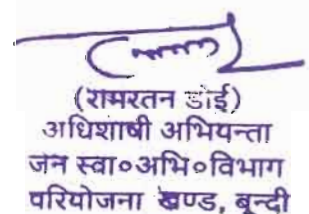 (रामरतन डोई)
अधिशाषी अभियन्ता
जन स्वा०अभि०विभाग
परियोजना खण्ड, बून्दी